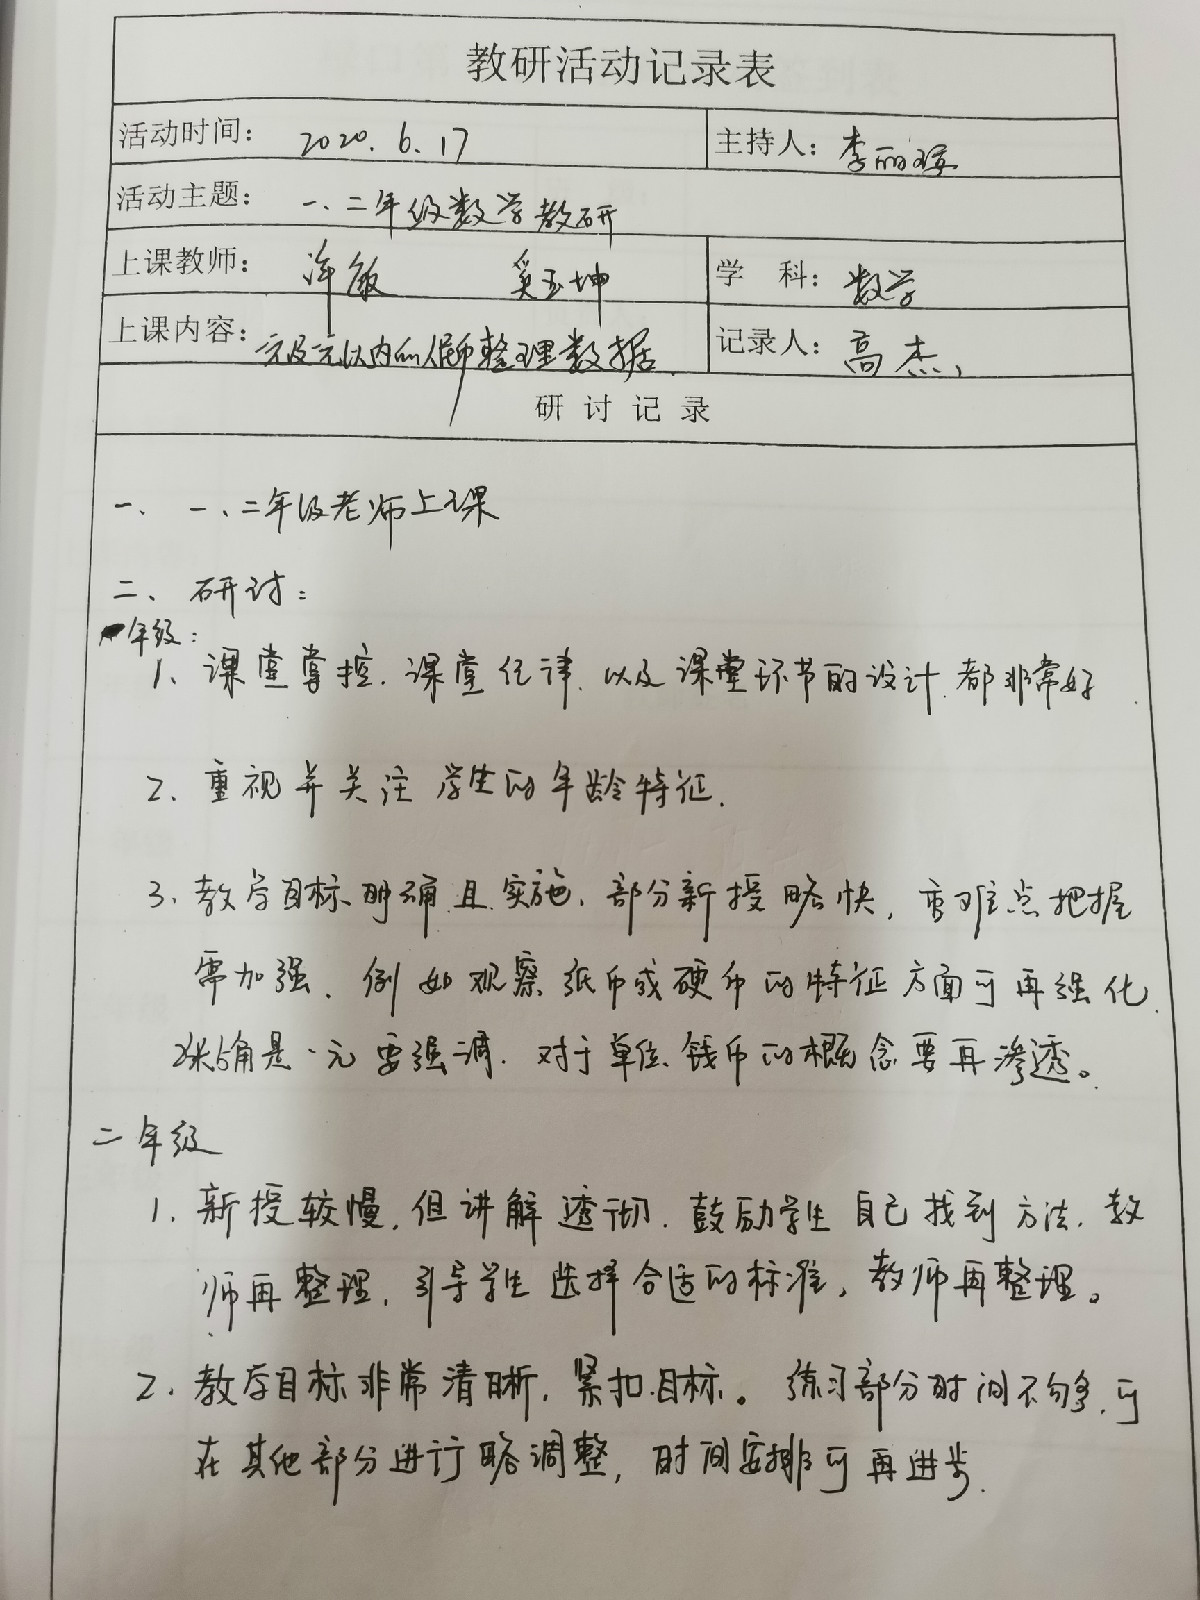 教研活动记录表
活动时间： 2020.6.17 主持人：李丽
活动主题： 一、二年级数学教研
上课教师： 徐敏 奚玉坤 学 科：数学
上课内容：元及元以内的人民币 整理数据. 记录人：高杰
研 讨 记 录
一、 一、二年级老师上课
二、 研讨：
一年级：
1、课堂掌控、课堂纪律、以及课堂环节的设计都非常好
2、重视并关注学生的年龄特征.
3、教学目标明确且实施、部分新授略快，重难点把握
需加强、例如观察纸币或硬币的特征方面可再强化
是一元要强调、对于单位、钱币的概念要再渗透。
二年级
1、新授较慢，但讲解透彻.鼓励学生自己找到方法、教
师再整理，引导学生选择合适的标准，教师再整理。
2、教学目标非常清晰，紧扣目标。练习部分时间不够多，可
在其他部分进行略调整，时间安排可再进步.